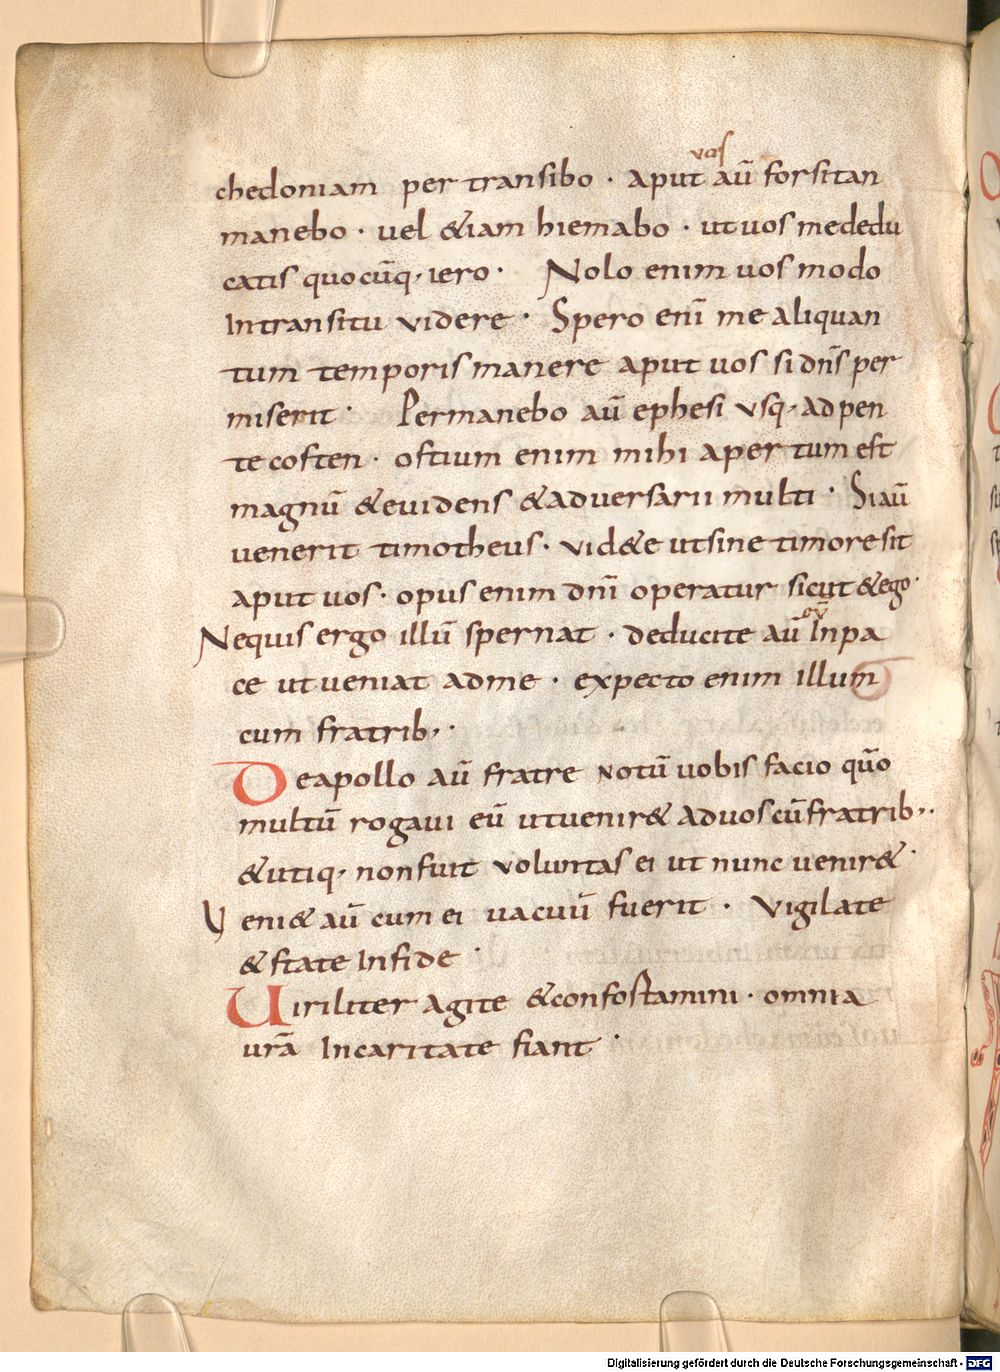 chedoniam per transibo · aput vos aū forsitan
manebo · uel &iam hiemabo · ut uos mededu
catis quocūq, iero · Nolo enim uos modo
Intransitu videre · Spero enī me aliquan
tum temporis manere aput uos si dn̄s per
miserit · Permanebo aū ephesi vsq, ad pen
te costen · ostium enim mihi apertum est
magnū &euidens &adversarii multi · Si aū
uenerit timotheus · vid&e ut sine timore sit
aput uos · opus enim dn̄i operatur sicut &ego ·
Nequis ergo illū spernat · deducite aū Inpa
ce ut ueniat adme · expecto enim illum
cum fratrib, ·
Deapollo aū fratre notū uobis facio qūo
multū rogaui eū utuenir& aduos cū fratrib, ·
&utiq, non fuit voluntas ei ut nunc uenir& ·
Veni& aū cum ei uacuū fuerit · Vigilate
&state Infide ·
Uiriliter agite &confostamini · omnia
urā Incaritate fiant ·
Digitalisierung gefördert durch die Deutsche Forschungsgemeinschaft - DFG